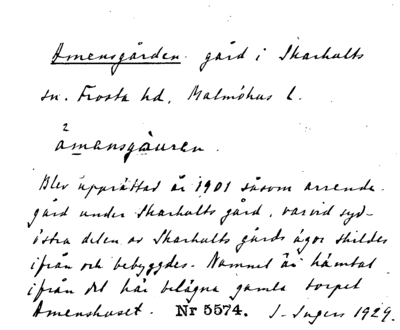 Amensgården. gård i Skarhults
sn. Frosta hd, Malmöhus l.
2
åmansgåuren.
Blev upprättad år 1901 såsom arrende-
gård under Skarhults gård, varvid syd-
östra delen av Skarhults gårds ägor skildes
ifrån och bebyggdes. Namnet är hämtat
ifrån det här belägna gamla torpet
Amenshuset. Nr 5574. I. Ingers 1929.